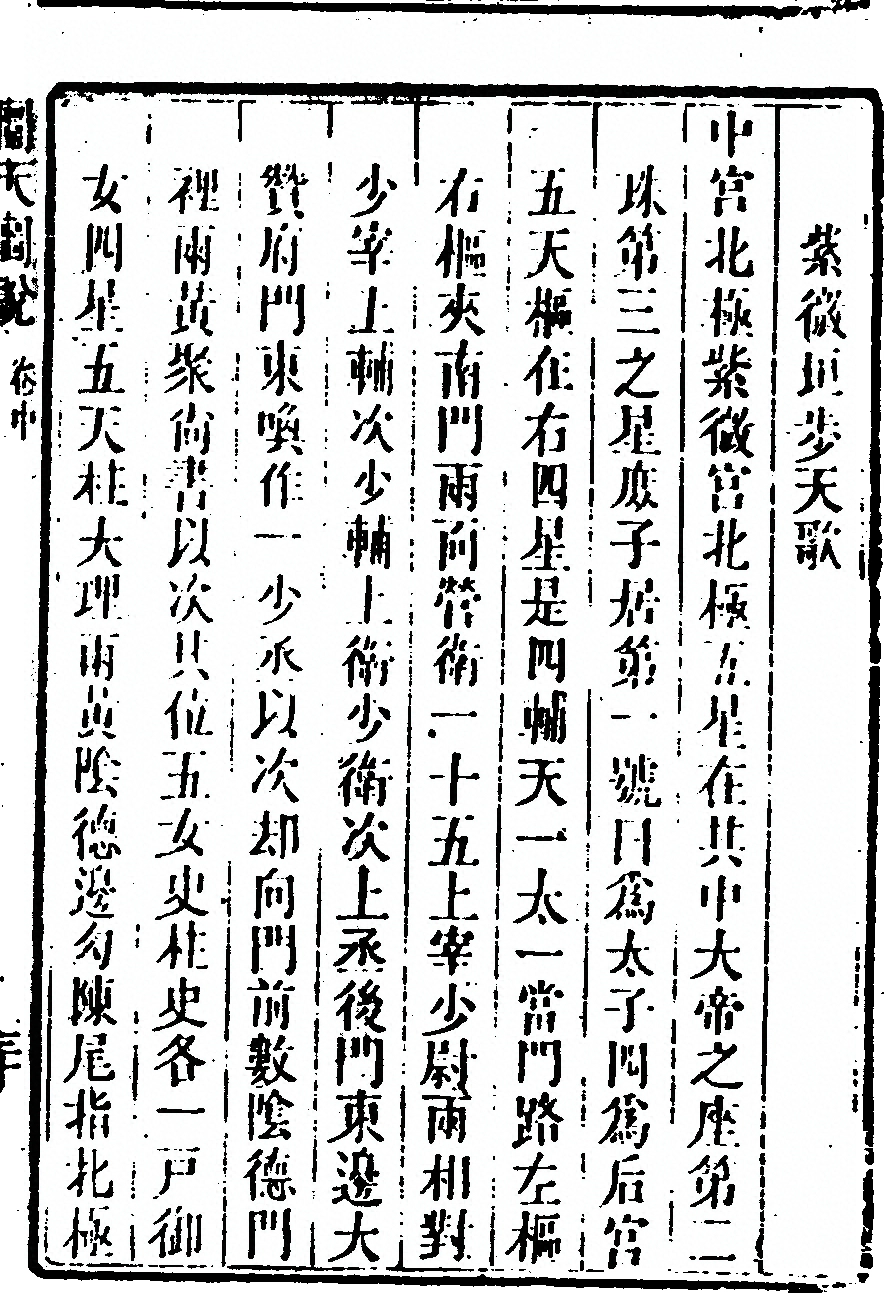 紫微垣步天歌
中宮北極紫微宮北極五星在其中大帝之座第二
珠第三之星庶子居第一號曰爲太子四爲后宮
五天樞在右四星是四輔天一太一當門路左樞
右樞夾南門兩向營衛一十五上宰少尉兩相對
少宰上輔次少輔上衛少衛次上丞後門東邊大
贊府門東喚作一少丞以次却向門前數陰德門
裡兩黃聚尚書以次其位五女史柱史各一戸御
女四星五天柱大理兩黃陰德邊勾陳尾指北極
圖說 卷中